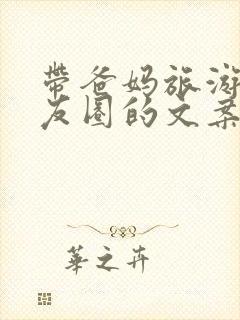 带爸妈旅游
友圈的文案
华之卉